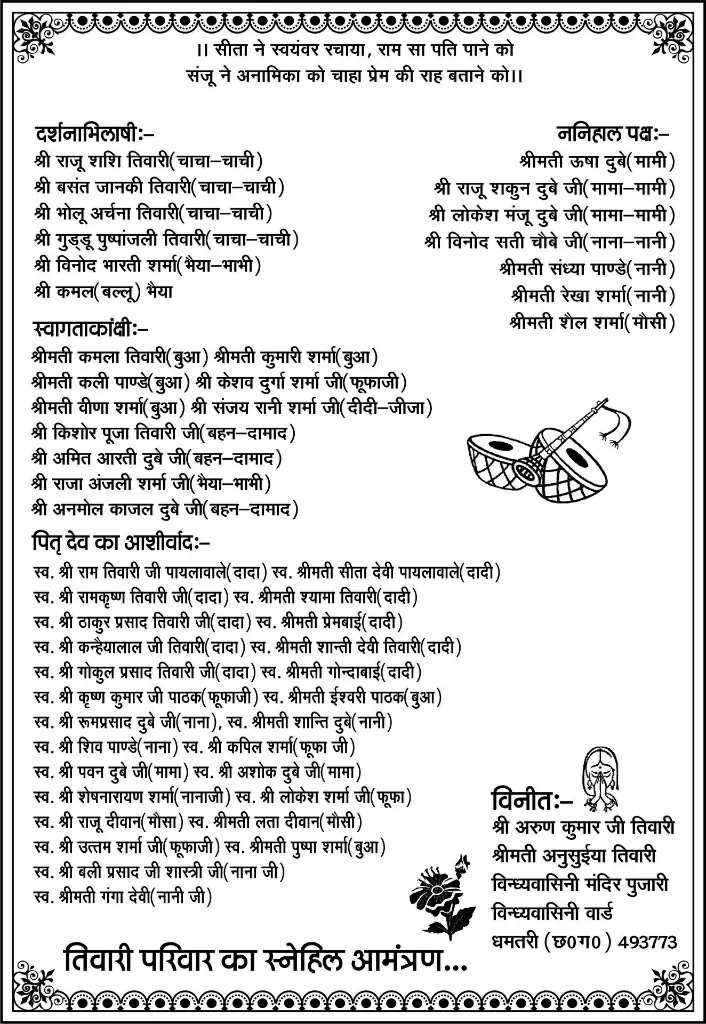 ।। सीता ने स्वयंवर रचाया, राम सा पति पाने को
संजू ने अनामिका को चाहा प्रेम की राह बताने को।।
दर्शनाभिलाषीः–
श्री राजू शशि तिवारी(चाचा–चाची)
श्री बसंत जानकी तिवारी(चाचा–चाची)
श्री भोलू अर्चना तिवारी(चाचा–चाची)
श्री गुड्डू पुष्पांजली तिवारी(चाचा–चाची)
श्री विनोद भारती शर्मा(भैया–भाभी)
श्री कमल(बल्लू) भैया
ननिहाल पक्षः–
श्रीमती ऊषा दुबे(मामी)
श्री राजू शकुन दुबे जी(मामा–मामी)
श्री लोकेश मंजू दुबे जी(मामा–मामी)
श्री विनोद सती चौबे जी(नाना–नानी)
श्रीमती संध्या पाण्डे(नानी)
श्रीमती रेखा शर्मा(नानी)
श्रीमती शैल शर्मा(मौसी)
स्वागताकांक्षीः–
श्रीमती कमला तिवारी(बुआ) श्रीमती कुमारी शर्मा(बुआ)
श्रीमती कली पाण्डे(बुआ) श्री केशव दुर्गा शर्मा जी(फूफाजी)
श्रीमती वीणा शर्मा(बुआ) श्री संजय रानी शर्मा जी(दीदी–जीजा)
श्री किशोर पूजा तिवारी जी(बहन–दामाद)
श्री अमित आरती दुबे जी(बहन–दामाद)
श्री राजा अंजली शर्मा जी(भैया–भाभी)
श्री अनमोल काजल दुबे जी(बहन–दामाद)
पितृ देव का आशीर्वादः–
स्व. श्री राम तिवारी जी पायलावाले(दादा) स्व. श्रीमती सीता देवी पायलावाले(दादी)
स्व. श्री रामकृष्ण तिवारी जी(दादा) स्व. श्रीमती श्यामा तिवारी(दादी)
स्व. श्री ठाकुर प्रसाद तिवारी जी(दादा) स्व. श्रीमती प्रेमबाई(दादी)
स्व. श्री कन्हैयालाल जी तिवारी(दादा) स्व. श्रीमती शान्ती देवी तिवारी(दादी)
स्व. श्री गोकुल प्रसाद तिवारी जी(दादा) स्व. श्रीमती गोन्दाबाई(दादी)
स्व. श्री कृष्ण कुमार जी पाठक(फूफाजी) स्व. श्रीमती ईश्वरी पाठक(बुआ)
स्व. श्री रूमप्रसाद दुबे जी(नाना), स्व. श्रीमती शान्ति दुबे(नानी)
स्व. श्री शिव पाण्डे(नाना) स्व. श्री कपिल शर्मा(फूफा जी)
स्व. श्री पवन दुबे जी(मामा) स्व. श्री अशोक दुबे जी(मामा)
स्व. श्री शेषनारायण शर्मा(नानाजी) स्व. श्री लोकेश शर्मा जी(फूफा)
स्व. श्री राजू दीवान(मौसा) स्व. श्रीमती लता दीवान(मौसी)
स्व. श्री उत्तम शर्मा जी(फूफाजी) स्व. श्रीमती पुष्पा शर्मा(बुआ)
स्व. श्री बली प्रसाद जी शास्त्री जी(नाना जी)
स्व. श्रीमती गंगा देवी(नानी जी)
विनीतः–
श्री अरुण कुमार जी तिवारी
श्रीमती अनुसुईया तिवारी
विन्ध्यवासिनी मंदिर पुजारी
विन्ध्यवासिनी वार्ड
धमतरी (छ0ग0) 493773
तिवारी परिवार का स्नेहिल आमंत्रण...